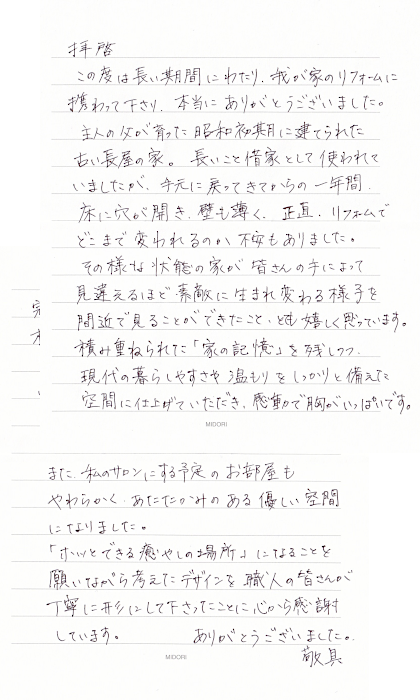 拝啓
この度は長い期間にわたり、我が家のリフォームに
携わって下さり、本当にありがとうございました。
主人の父が育った昭和初期に建てられた
古い長屋の家。長いこと借家として使われて
いましたが、手元に戻ってきてからの一年間、
床に穴が開き、壁も薄く、正直、リフォームで
どこまで変われるのか不安もありました。
その様な状態の家が皆さんの手によって
見違えるほど素敵に生まれ変わる様子を
間近で見ることができたこと、とても嬉しく思っています。
積み重ねられた「家の記憶」を残しつつ、
現代の暮らしやすさや温もりをしっかりと備えた
空間に仕上げていただき、感動で胸がいっぱいです。
MIDORI
また、私のサロンにする予定のお部屋も
やわらかく、あたたかみのある優しい空間
になりました。
「ホッとできる癒やしの場所」になることを
願いながら考えたデザインを職人の皆さんが
丁寧に形にして下さったことに心から感謝
しています。 ありがとうございました。
敬具
MIDORI